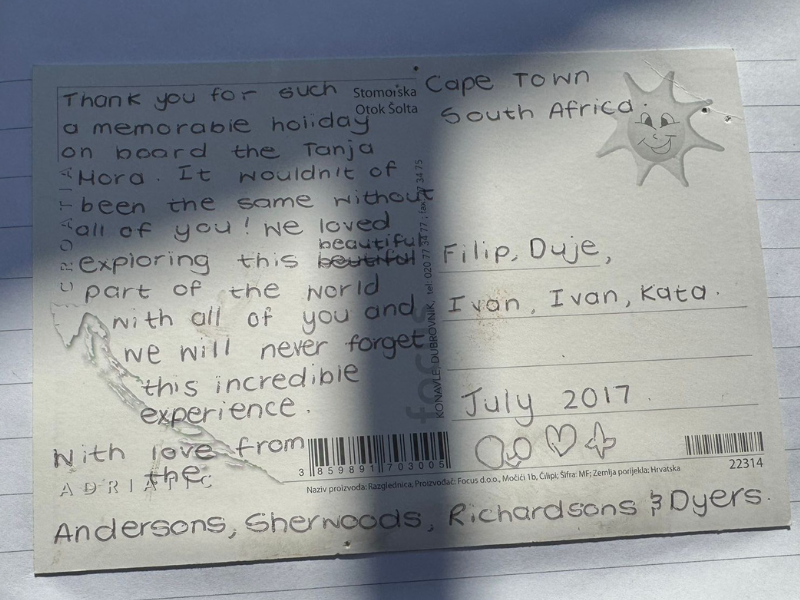 Thank you for such
a memorable holiday
on board the Tanja
Mora. It wouldn't of
been the same without
all of you! We loved
beautiful
exploring this beutiful
part of the world
with all of you and
we will never forget
this incredible
experience.
With love from
the
Andersons, Sherwoods, Richardsons & Dyers.
Stomorska
Otok Šolta
Cape Town
South Africa.
Filip, Duje,
Ivan, Ivan, Kata.
July 2017.
CROATIA
ADRIATIC
focus
KONAVLE, DUBROVNIK, tel: 020 77 34 77
3 859891 703005
Naziv proizvoda: Razglednica, Proizvođač: Focus d.o.o., Močići 1b, Čilipi; Šifra: MF; Zemlja porijekla: Hrvatska
22314